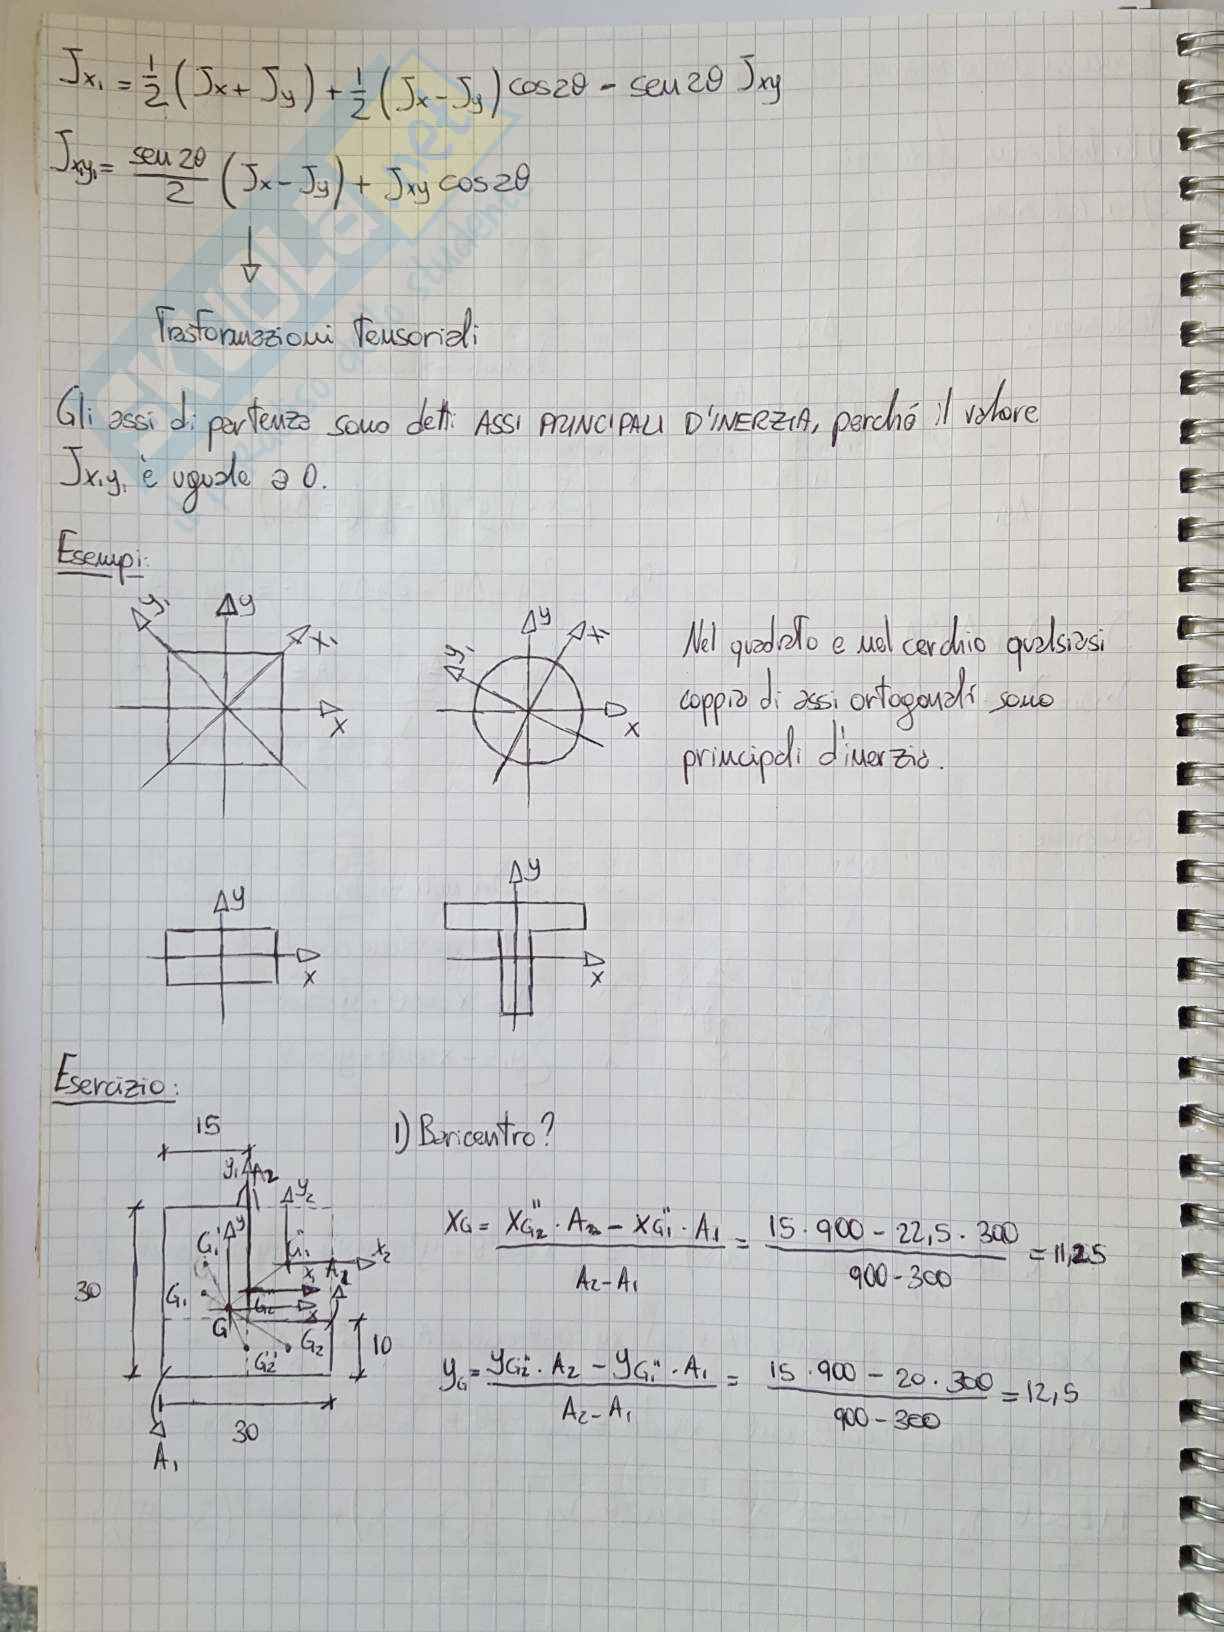 Jx₁ = 1/2 (Jx + Jy) + 1/2 (Jx - Jy) cos2θ - sen2θ Jxy
Jx₁y₁ = sen2θ/2 (Jx - Jy) + Jxy cos2θ
Trasformazioni Tensoriali
Gli assi di partenza sono detti ASSI PRINCIPALI D'INERZIA, perché il valore
Jx₁y₁ è uguale a 0.
Esempi:
y₁ y x₁ x
y₁ y x₁ x
Nel quadrato e nel cerchio qualsiasi
coppia di assi ortogonali sono
principali d'inerzia.
y x
y x
Esercizio:
15
1) Baricentro?
y₁ A₂ y₂
G₁' y G₁'' x₂
30 G₁ x₁ A₂
G x
G₂' G₂ 10
30
A₁
xG = (xG₂'' · A₂ - xG₁'' · A₁)/(A₂ - A₁) = (15 · 900 - 22,5 · 300)/(900 - 300) = 11,25
yG = (yG₂'' · A₂ - yG₁'' · A₁)/(A₂ - A₁) = (15 · 900 - 20 · 300)/(900 - 300) = 12,5
SKUOLA.net